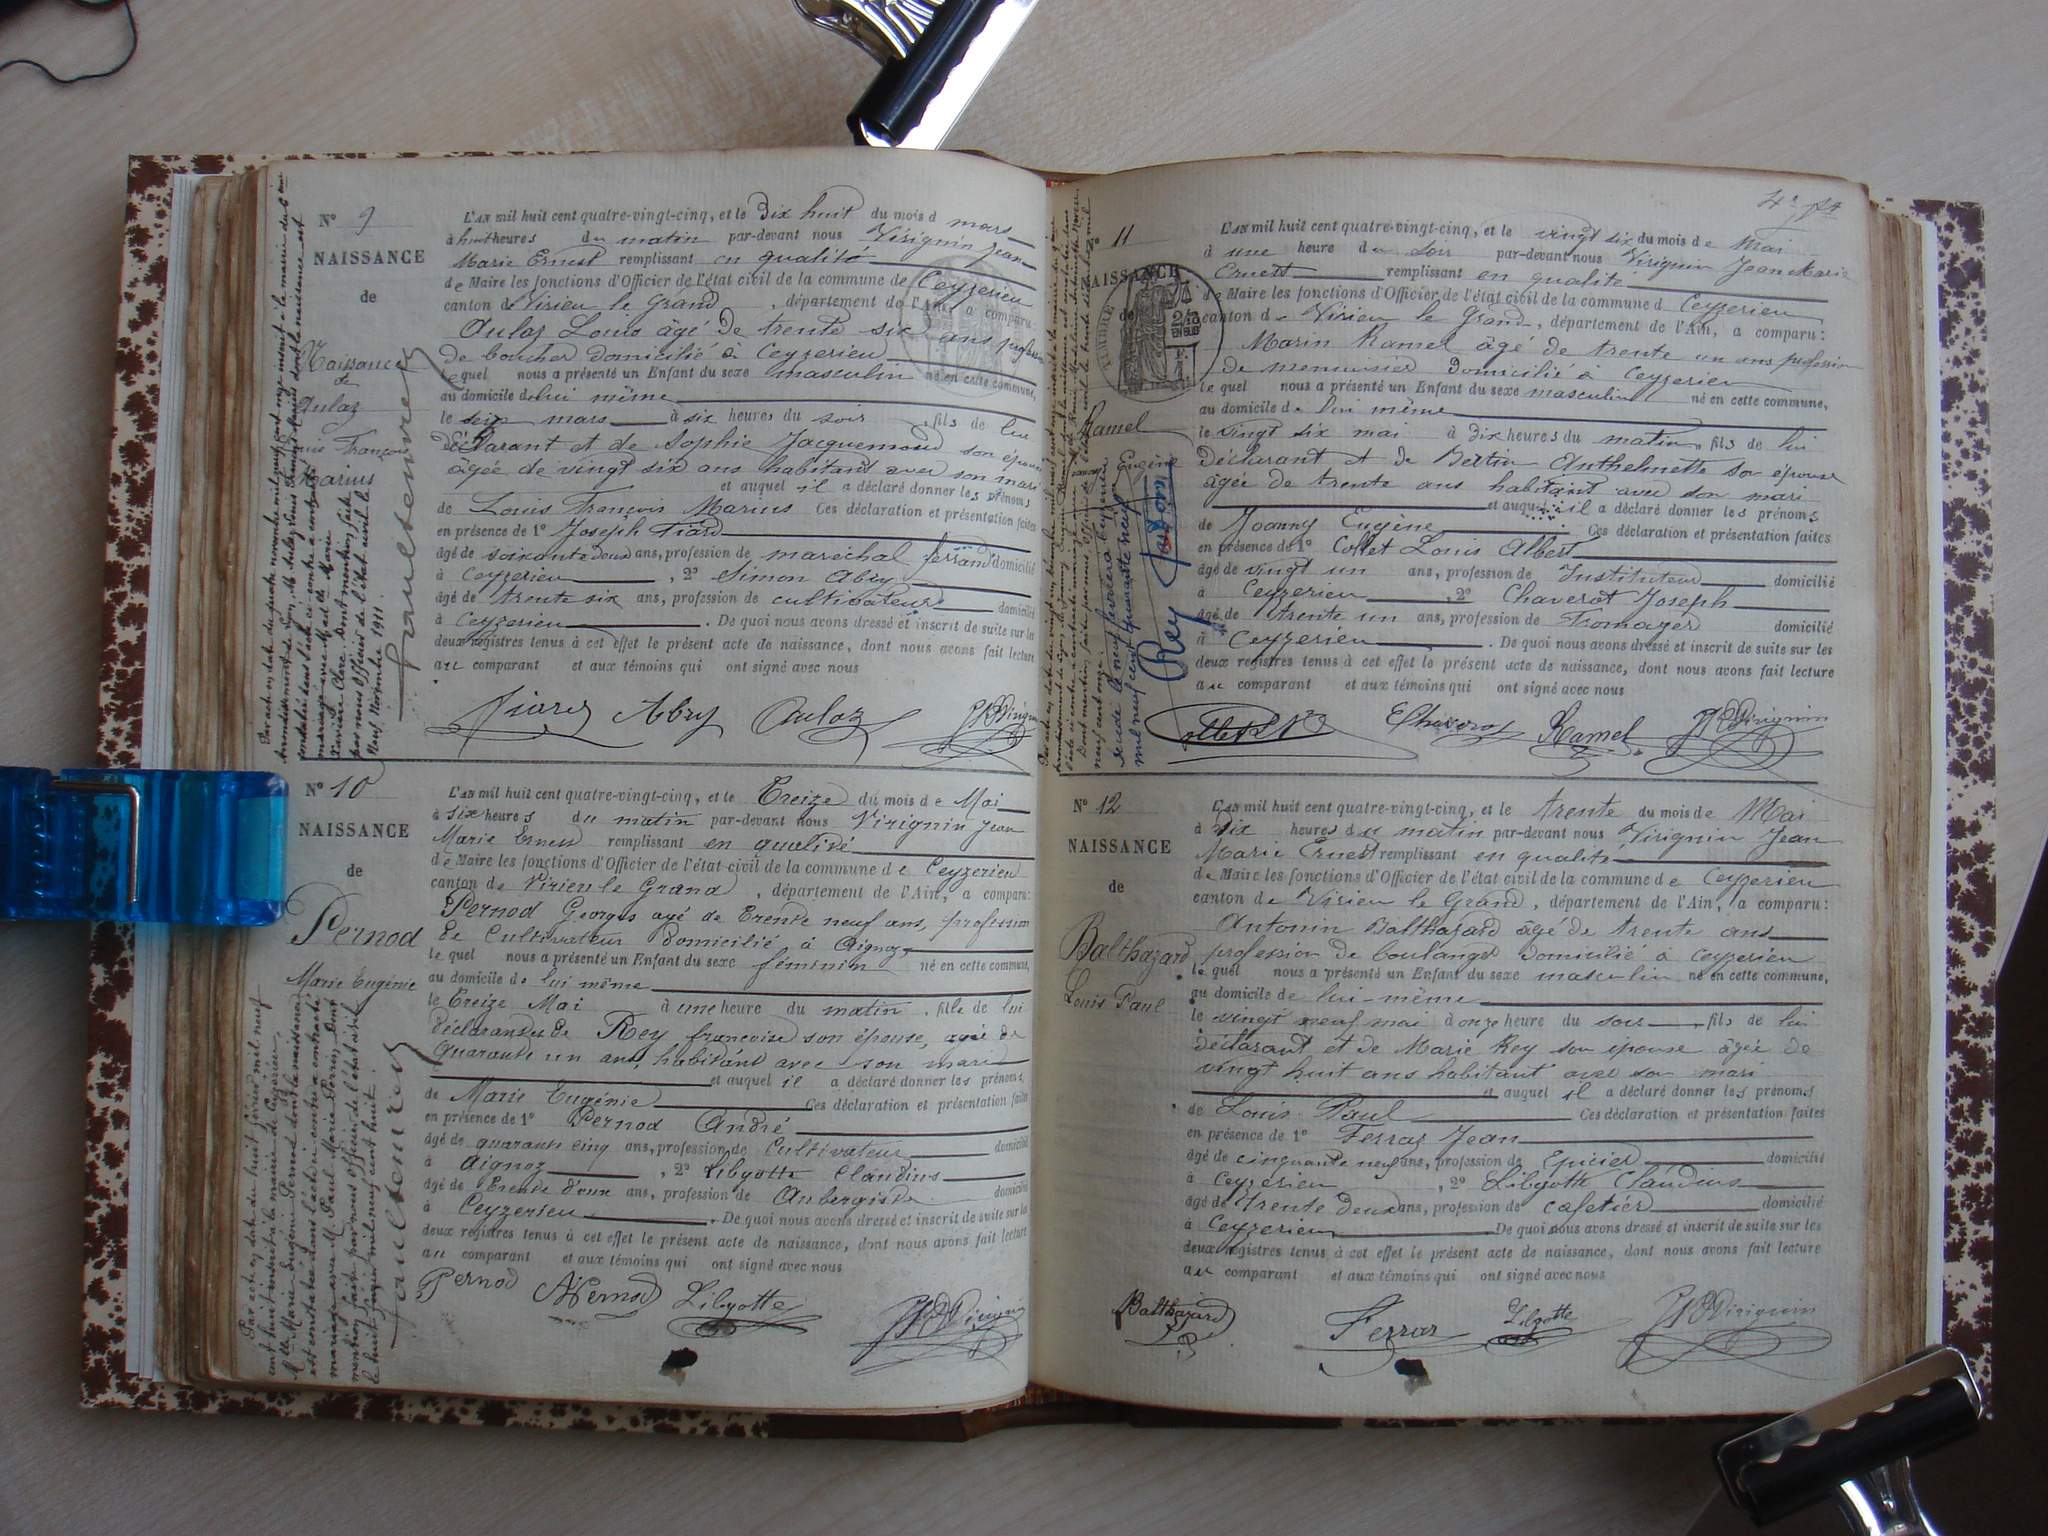 N° 9
NAISSANCE
de
Naissance
de
Aulaz
Louis François
Marius
L'AN mil huit cent quatre-vingt-cinq, et le Dix huit du mois d mars
à huit heures du matin par-devant nous Virignin Jean
Marie Ernest remplissant en qualité
de Maire les fonctions d'Officier de l'état civil de la commune de Ceyzerieu
canton d Virieu le Grand, département de l'Ain, a comparu:
Aulaz Louis âgé de trente six ans profession
de boucher domicilié à Ceyzerieu
lequel nous a présenté un Enfant du sexe masculin né en cette commune,
au domicile de lui même
le seize mars à six heures du soir, fils de lui
déclarant et de Sophie Jacquemoud son épouse
âgée de vingt six ans habitant avec son mari
et auquel il a déclaré donner les prénoms
de Louis François Marius Ces déclaration et présentation faites
en présence de 1° Joseph Fiard
âgé de soixante deux ans, profession de maréchal ferrand domicilié
à Ceyzerieu, 2° Simon Abry
âgé de trente six ans, profession de cultivateur domicilié
à Ceyzerieu. De quoi nous avons dressé et inscrit de suite sur les
deux registres tenus à cet effet le présent acte de naissance, dont nous avons fait lecture
au comparant et aux témoins qui ont signé avec nous
Fiard Abry Aulaz Virignin
N° 10
NAISSANCE
de
Pernod
Marie Eugénie
L'AN mil huit cent quatre-vingt-cinq, et le Treize du mois de Mai
à six heures du matin par-devant nous Virignin Jean
Marie Ernest remplissant en qualité
de Maire les fonctions d'Officier de l'état civil de la commune de Ceyzerieu
canton de Virieu le Grand, département de l'Ain, a comparu:
Pernod Georges agé de trente neuf ans, profession
de Cultivateur Domicilié à Aignoz
lequel nous a présenté un Enfant du sexe féminin né en cette commune,
au domicile de lui même
le Treize Mai à une heure du matin, fille de lui
déclarant et de Rey françoise son épouse, agée de
quarante un ans, habitant avec son mari
et auquel il a déclaré donner les prénoms
de Marie Eugénie Ces déclaration et présentation faites
en présence de 1° Pernod André
âgé de quarante cinq ans, profession de Cultivateur domicilié
à Aignoz, 2° Libyotte Claudius
âgé de trente deux ans, profession de Aubergiste domicilié
à Ceyzerieu. De quoi nous avons dressé et inscrit de suite sur les
deux registres tenus à cet effet le présent acte de naissance, dont nous avons fait lecture
au comparant et aux témoins qui ont signé avec nous
Pernod APernod Libyotte Virignin
Par acte en date du huit février mil neuf
cent huit inscrit à la mairie de Ceyzerieu,
Mlle Marie Eugénie Pernod dont la naissance
est constatée dans l'acte ci-contre a contracté
mariage avec M. Paul Marie Perrin. Dont
mention faite par nous officier de l'état civil
N° 11
NAISSANCE
de
Ramel
Eugène
L'AN mil huit cent quatre-vingt-cinq, et le vingt six du mois de Mai
à une heure du soir par-devant nous Virignin Jean Marie
Ernest remplissant en qualité
de Maire les fonctions d'Officier de l'état civil de la commune d Ceyzerieu
canton de Virieu le Grand, département de l'Ain, a comparu:
Marin Ramel âgé de trente un ans profession
de menuisier Domicilié à Ceyzerieu
lequel nous a présenté un Enfant du sexe masculin né en cette commune,
au domicile de lui même
le vingt six mai à dix heures du matin, fils de lui
déclarant et de Bertin Anthelmette son épouse
âgée de trente ans habitant avec son mari
et auquel il a déclaré donner les prénoms
de Joanny Eugène Ces déclaration et présentation faites
en présence de 1° Collet Louis Albert
âgé de vingt un ans, profession de Instituteur domicilié
à Ceyzerieu, 2° Chaverot Joseph
âgé de trente un ans, profession de Fromager domicilié
à Ceyzerieu. De quoi nous avons dressé et inscrit de suite sur les
deux registres tenus à cet effet le présent acte de naissance, dont nous avons fait lecture
au comparant et aux témoins qui ont signé avec nous
Collet Chaverot Ramel Virignin
N° 12
NAISSANCE
de
Balthazard
Louis Paul
L'AN mil huit cent quatre-vingt-cinq, et le trente du mois de Mai
à Dix heures du matin par-devant nous Virignin Jean
Marie Ernest remplissant en qualité
de Maire les fonctions d'Officier de l'état civil de la commune de Ceyzerieu
canton de Virieu le Grand, département de l'Ain, a comparu:
Antonin Balthazard âgé de trente ans
profession de boulanger Domicilié à Ceyzerieu
lequel nous a présenté un Enfant du sexe masculin né en cette commune,
au domicile de lui-même
le vingt neuf mai à onze heure du soir, fils de lui
déclarant et de Marie Rey son épouse âgée de
vingt huit ans habitant avec son mari
et auquel il a déclaré donner les prénoms
de Louis Paul Ces déclaration et présentation faites
en présence de 1° Ferraz Jean
âgé de cinquante neuf ans, profession de Epicier domicilié
à Ceyzerieu, 2° Libyotte Claudius
âgé de trente deux ans, profession de cafetier domicilié
à Ceyzerieu De quoi nous avons dressé et inscrit de suite sur les
deux registres tenus à cet effet le présent acte de naissance, dont nous avons fait lecture
au comparant et aux témoins qui ont signé avec nous
Balthazard Ferraz Libyotte Virignin